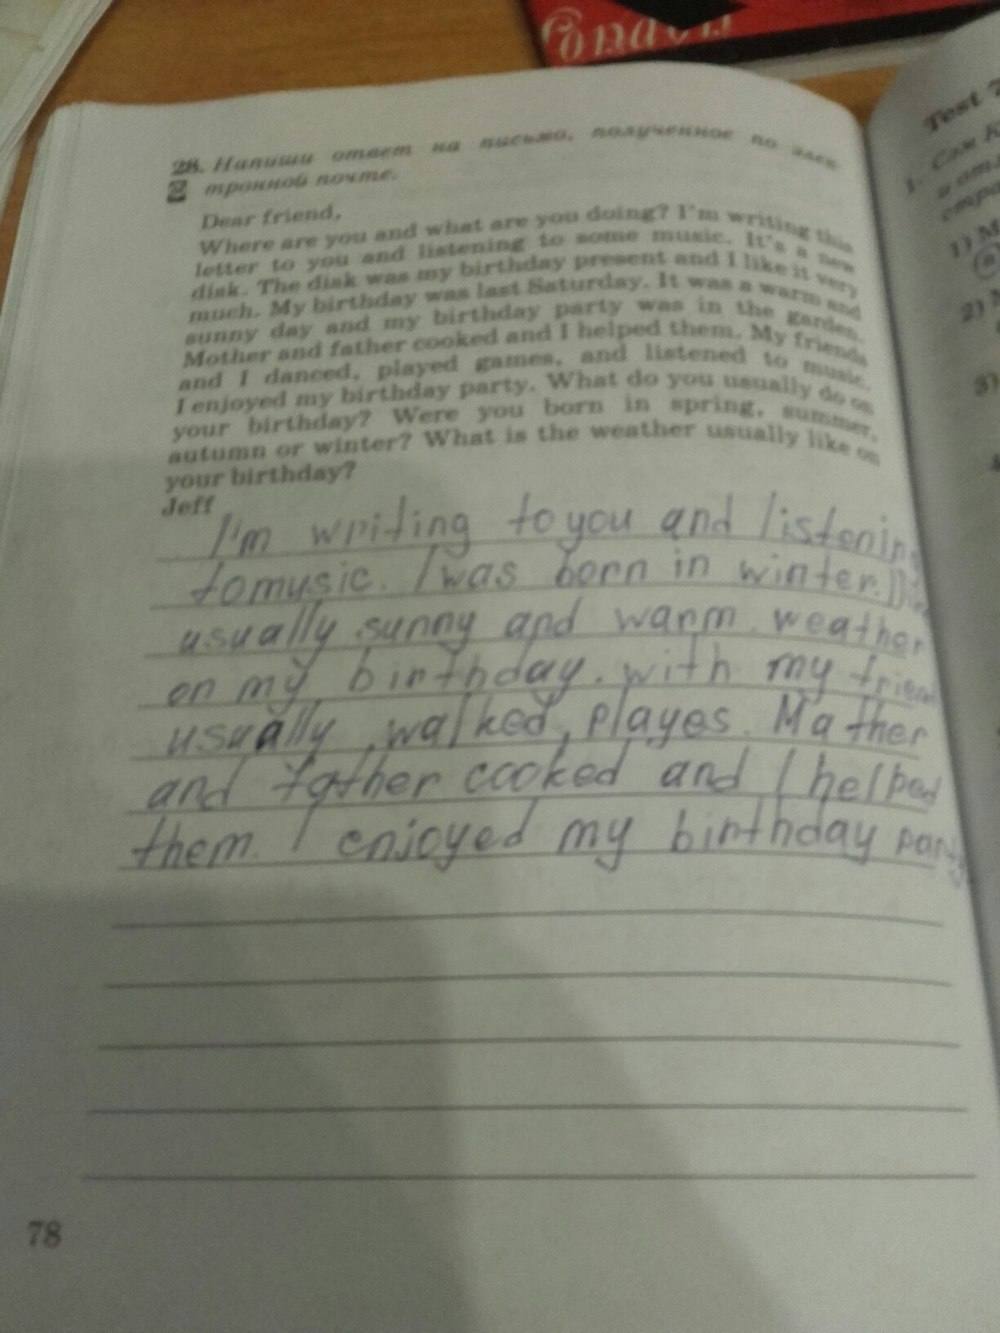 London
28. Напиши ответ на письмо, полученное по элек-
тронной почте.
Dear friend,
Where are you and what are you doing? I'm writing this
letter to you and listening to some music. It's a new
disk. The disk was my birthday present and I like it very
much. My birthday was last Saturday. It was a warm and
sunny day and my birthday party was in the garden.
Mother and father cooked and I helped them. My friends
and I danced, played games, and listened to music.
I enjoyed my birthday party. What do you usually do on
your birthday? Were you born in spring, summer,
autumn or winter? What is the weather usually like on
your birthday?
Jeff
I'm writing to you and listening
to music. I was born in winter.
usually sunny and warm weather
on my birthday. with my friend
usually, walked, playes. Mather
and father cooked and I helped
them. I enjoyed my birthday party
78
Test 2
1.
1)
2)
3)